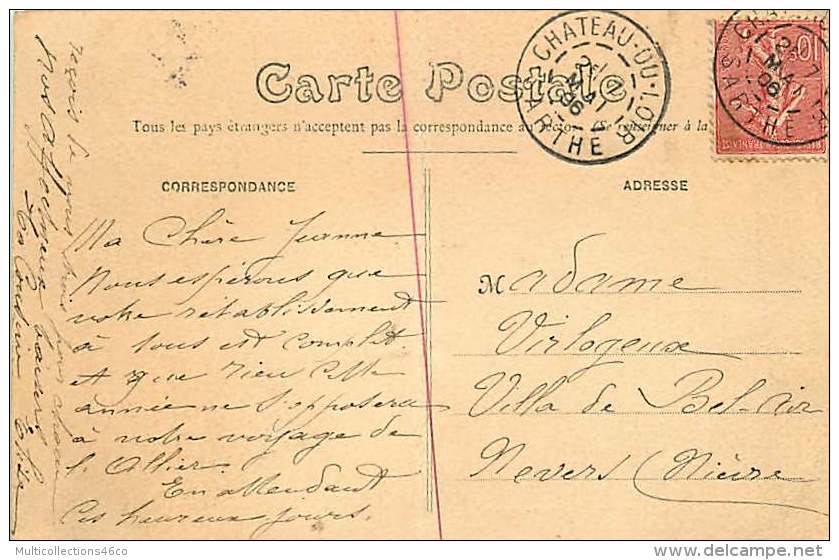 Carte Postale
Tous les pays étrangers n'acceptent pas la correspondance au recto (Se renseigner à la
CORRESPONDANCE
Ma Chère Jeanne
Nous espérons que
votre rétablissement
à tous est complet
et que rien cette
année ne s'opposera
à votre voyage de
l'Allier.
En attendant
ces heureux jours.
reçois de nous trois pour chacun
nos affectueux baisers
Ta Cousine
ADRESSE
Madame
Virlogeux
Villa de Bel-Air
Nevers (Nièvre)
CHATEAU-DU-LOIR
MAI
06
SARTHE
10
MAI
06
SARTHE
Multicollections46co
©delcampe.net